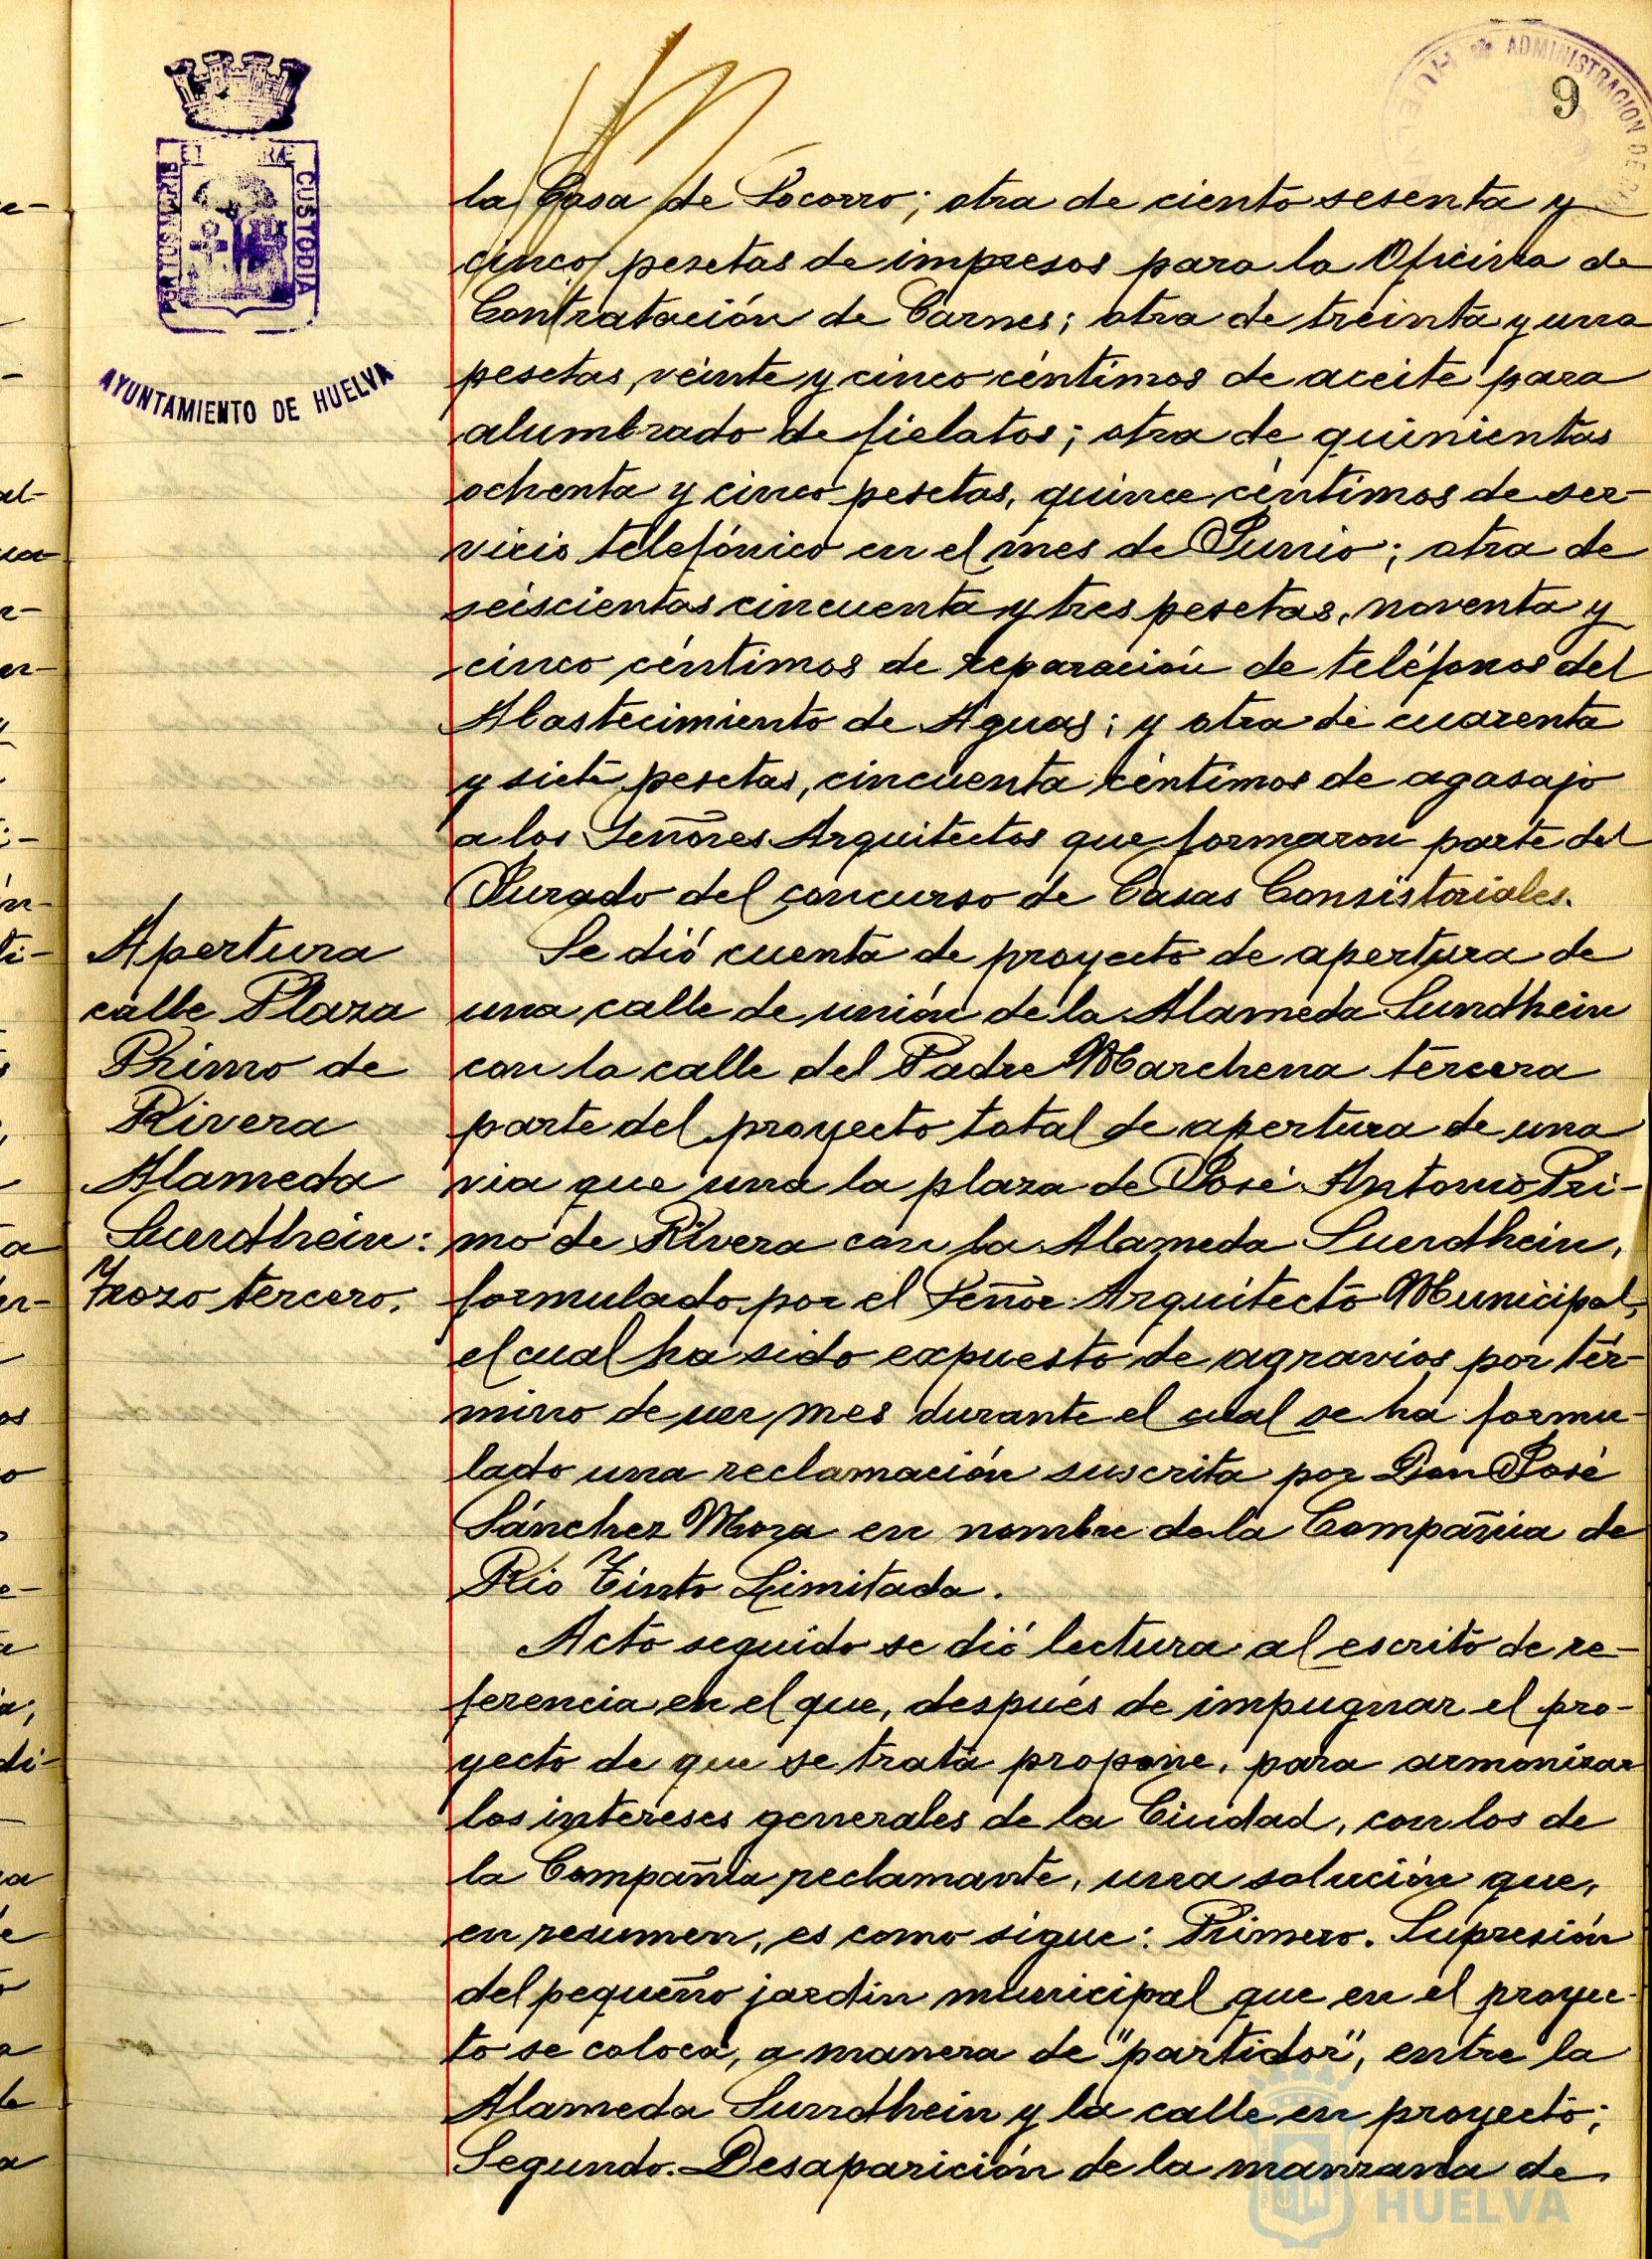 9
ADMINISTRACION DE
HUELVA
PORTUS MARIS
ET TERRÆ
CUSTODIA
AYUNTAMIENTO DE HUELVA
la Casa de Socorro; otra de ciento sesenta y
cinco pesetas de impresos para la Oficina de
Contratación de Carnes; otra de treinta y una
pesetas, veinte y cinco céntimos de aceite para
alumbrado de fielatos; otra de quinientas
ochenta y cinco pesetas, quince céntimos de ser-
vicio telefónico en el mes de Junio; otra de
seiscientas cincuenta y tres pesetas, noventa y
cinco céntimos de reparación de teléfonos del
Abastecimiento de Aguas; y otra de cuarenta
y siete pesetas, cincuenta céntimos de agasajo
a los Señores Arquitectos que formaron parte del
Jurado del concurso de Casas Consistoriales.
Apertura
calle Plaza
Primo de
Rivera
Alameda
Sundhein:
Trozo tercero.
Se dió cuenta de proyecto de apertura de
una calle de unión de la Alameda Sundhein
con la calle del Padre Marchena tercera
parte del proyecto total de apertura de una
via que una la plaza de José Antonio Pri-
mo de Rivera con la Alameda Sundhein,
formulado por el Señor Arquitecto Municipal,
el cual ha sido expuesto de agravios por tér-
mino de un mes durante el cual se ha formu-
lado una reclamación suscrita por Don José
Sánchez Mora en nombre de la Compañia de
Rio Tinto Limitada.
Acto seguido se dió lectura al escrito de re-
ferencia en el que, después de impugnar el pro-
yecto de que se trata propone, para armonizar
los intereses generales de la Ciudad, con los de
la Compañia reclamante, una solución que,
en resumen, es como sigue: Primero. Supresión
del pequeño jardin municipal que en el proyec-
to se coloca, a manera de "partidor", entre la
Alameda Sundhein y la calle en proyecto;
Segundo. Desaparición de la manzana de
HUELVA